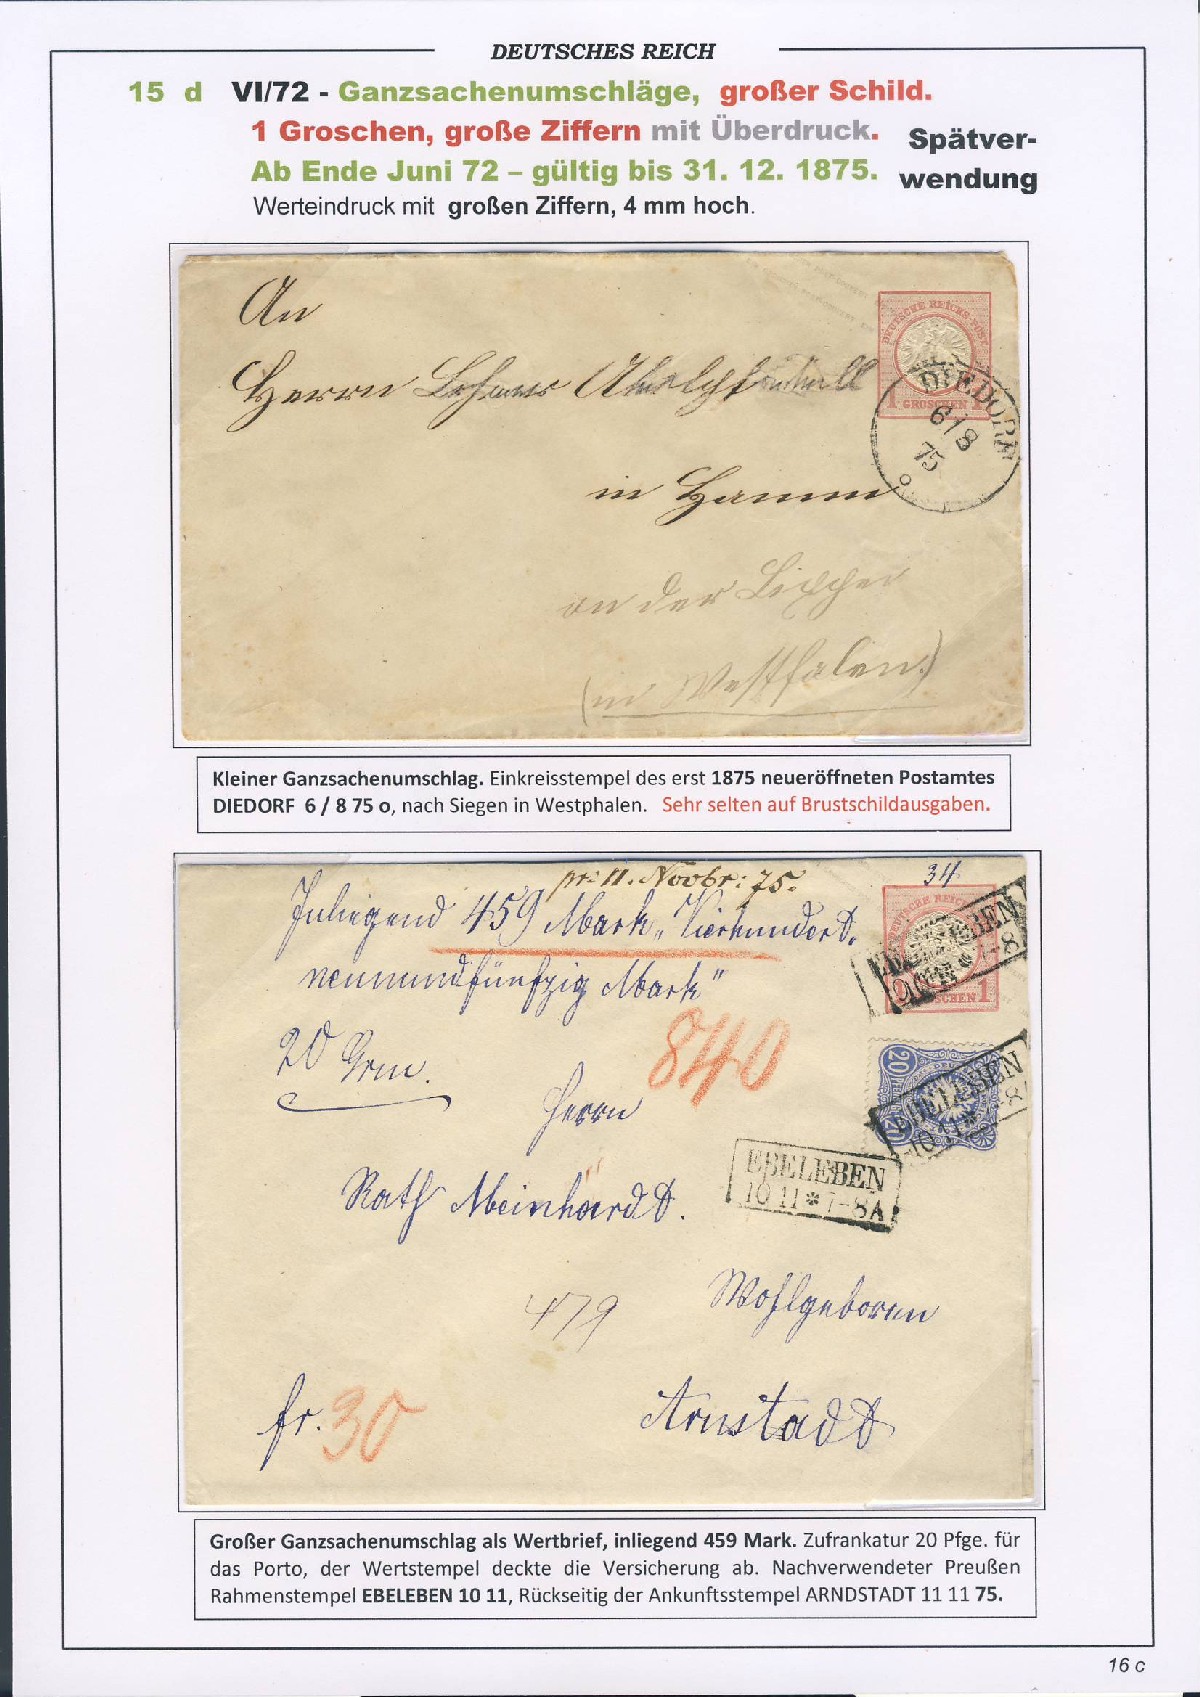 DEUTSCHES REICH
15 d VI/72 - Ganzsachenumschläge, großer Schild.
1 Groschen, große Ziffern mit Überdruck.
Ab Ende Juni 72 – gültig bis 31. 12. 1875.
Spätver-
wendung
Werteindruck mit großen Ziffern, 4 mm hoch.
An
Herrn
in Hamm
an der
(in Westfalen)
DEUTSCHE REICHS-POST
1 GROSCHEN 1
DIEDORF
6/8
75
o
Kleiner Ganzsachenumschlag. Einkreisstempel des erst 1875 neueröffneten Postamtes
DIEDORF 6 / 8 75 o, nach Siegen in Westphalen. Sehr selten auf Brustschildausgaben.
34
pr: 11. Novbr: 75.
Inliegend 459 Mark „Vierhundert.
neunundfünfzig Mark"
20 Grm.
840
Herrn
Rath Meinhardt.
479
Wohlgeboren
fr. 30
Arnstadt
EBELEBEN
10 11 * 7-8
20 20
EBELEBEN
10 11 * 7-8
EBELEBEN
10 11 * 7-8A
Großer Ganzsachenumschlag als Wertbrief, inliegend 459 Mark. Zufrankatur 20 Pfge. für
das Porto, der Wertstempel deckte die Versicherung ab. Nachverwendeter Preußen
Rahmenstempel EBELEBEN 10 11, Rückseitig der Ankunftsstempel ARNDSTADT 11 11 75.
16 c